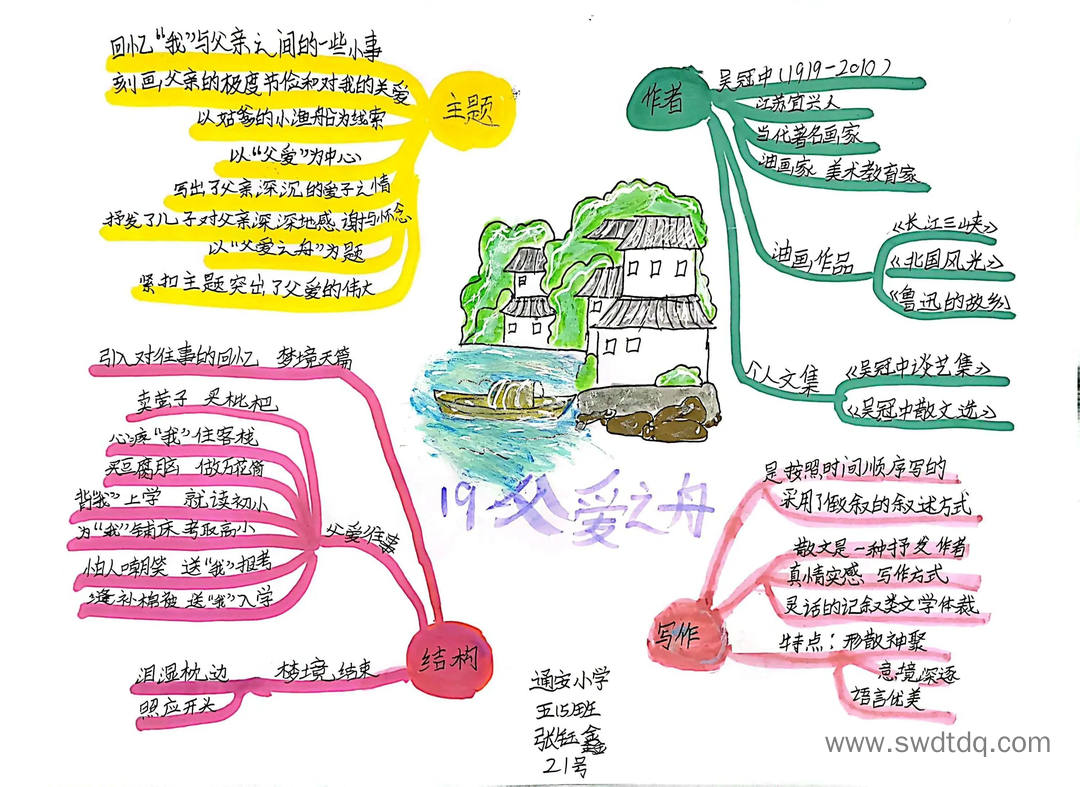 主题
回忆“我”与父亲之间的一些小事
刻画父亲的极度节俭和对我的关爱
以姑爹的小渔船为线索
以“父爱”为中心
写出了父亲深沉的爱子之情
抒发了儿子对父亲深深地感谢与怀念
以“父爱之舟”为题
紧扣主题突出了父爱的伟大
作者
吴冠中(1919-2010)
江苏宜兴人
当代著名画家
油画家 美术教育家
油画作品
《长江三峡》
《北国风光》
《鲁迅的故乡》
个人文集
《吴冠中谈艺集》
《吴冠中散文选》
19 父爱之舟
结构
引入对往事的回忆 梦境天篇
父爱往事
卖茧子 买枇杷
心疼“我”住客栈
买豆腐脑 做万花筒
背“我”上学 就读初小
为“我”铺床 考取高小
怕人嘲笑 送“我”报考
缝补棉被 送“我”入学
梦境结束
泪湿枕边
照应开头
写作
是按照时间顺序写的
采用了倒叙的叙述方式
散文是一种抒发作者
真情实感、写作方式
灵活的记叙类文学体裁
特点：形散神聚
意境深邃
语言优美
通安小学
五(5)班
张钰鑫
21号
www.swdtdq.com